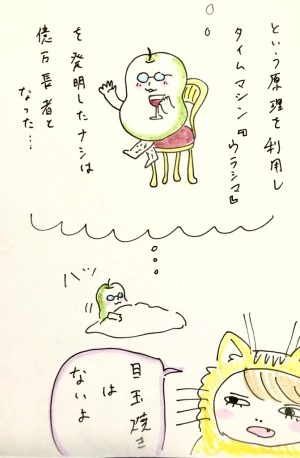 という原理を利用し
タイムマシン『ウラシマ』
を発明したナシは
億万長者と
なった…
バッ
目玉焼き
は
ないよ